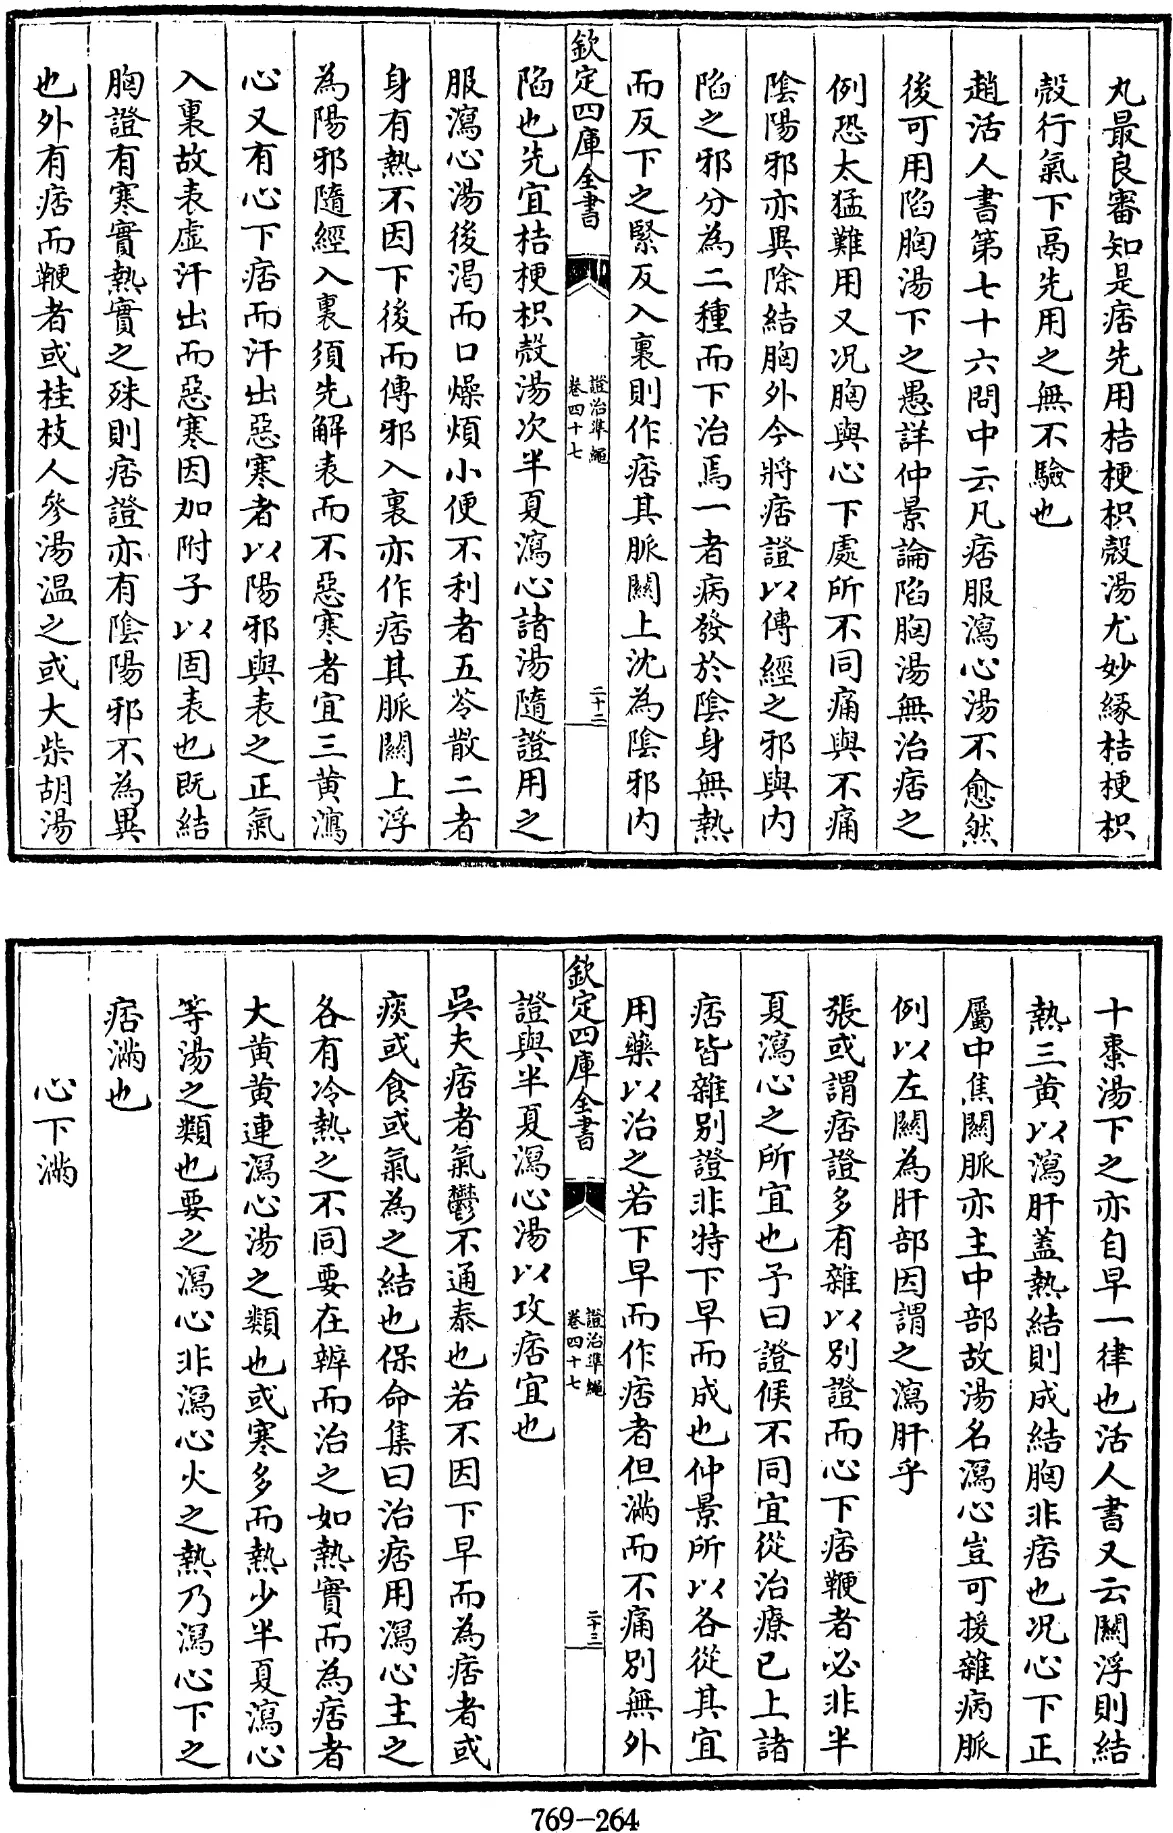 丸最良審知是痞先用桔梗枳殼湯尤妙緣桔梗枳
殼行氣下鬲先用之無不驗也
趙活人書第七十六問中云凡痞服瀉心湯不愈然
後可用陷胸湯下之愚詳仲景論陷胸湯無治痞之
例恐太猛難用又况胸與心下處所不同痛與不痛
陰陽邪亦異除結胸外今將痞證以傳經之邪與内
陷之邪分為二種而下治焉一者病發於陰身無熱
而反下之緊反入裏則作痞其脈關上沈為陰邪内
欽定四庫全書
證治準繩
卷四十七
二十二
陷也先宜桔梗枳殼湯次半夏瀉心諸湯隨證用之
服瀉心湯後渴而口燥煩小便不利者五苓散二者
身有熱不因下後而傳邪入裏亦作痞其脈關上浮
為陽邪隨經入裏須先解表而不惡寒者宜三黄瀉
心又有心下痞而汗出惡寒者以陽邪與表之正氣
入裏故表虛汗出而惡寒因加附子以固表也既結
胸證有寒實熱實之殊則痞證亦有陰陽邪不為異
也外有痞而鞕者或桂枝人參湯温之或大柴胡湯
十棗湯下之亦自早一律也活人書又云關浮則結
熱三黄以瀉肝蓋熱結則成結胸非痞也况心下正
屬中焦關脈亦主中部故湯名瀉心豈可援雜病脈
例以左關為肝部因謂之瀉肝乎
張或謂痞證多有雜以別證而心下痞鞕者必非半
夏瀉心之所宜也予曰證候不同宜從治療已上諸
痞皆雜別證非特下早而成也仲景所以各從其宜
用藥以治之若下早而作痞者但滿而不痛別無外
欽定四庫全書
證治準繩
卷四十七
二十三
證與半夏瀉心湯以攻痞宜也
吳夫痞者氣鬱不通泰也若不因下早而為痞者或
痰或食或氣為之結也保命集曰治痞用瀉心主之
各有冷熱之不同要在辨而治之如熱實而為痞者
大黄黄連瀉心湯之類也或寒多而熱少半夏瀉心
等湯之類也要之瀉心非瀉心火之熱乃瀉心下之
痞滿也
心下滿
769-264